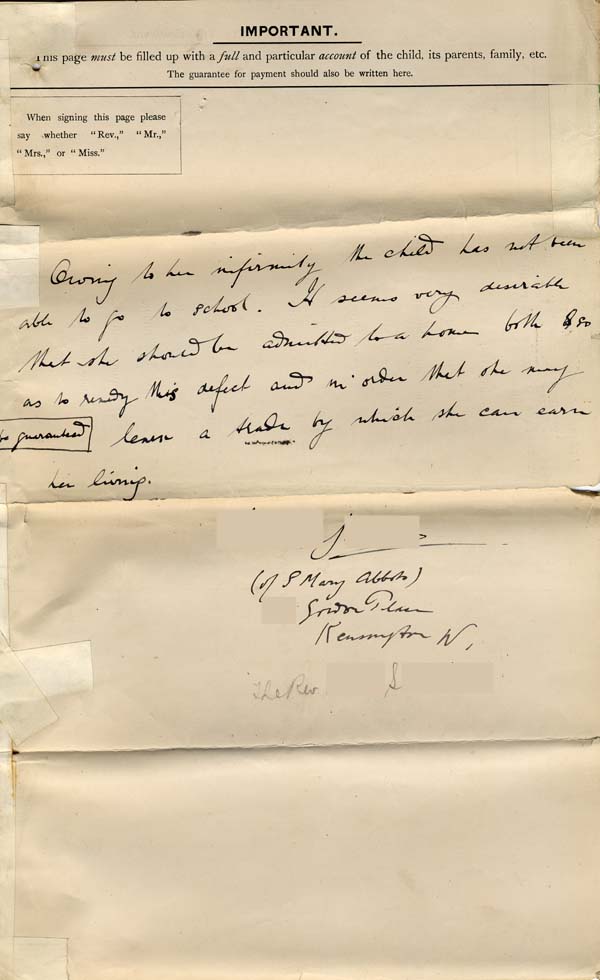 IMPORTANT.
This page must be filled up with a full and particular account of the child, its parents, family, etc.
The guarantee for payment should also be written here.
When signing this page please
say whether "Rev.," "Mr.,"
"Mrs.," or "Miss."
Owing to her infirmity the child has not been
able to go to school. It seems very desirable
that she should be admitted to a home both so
as to remedy this defect and in order that she may
be guaranteed
learn a trade by which she can earn
her living.
(of S Mary Abbots)
Gordon Place
Kensington W,
The Rev. S